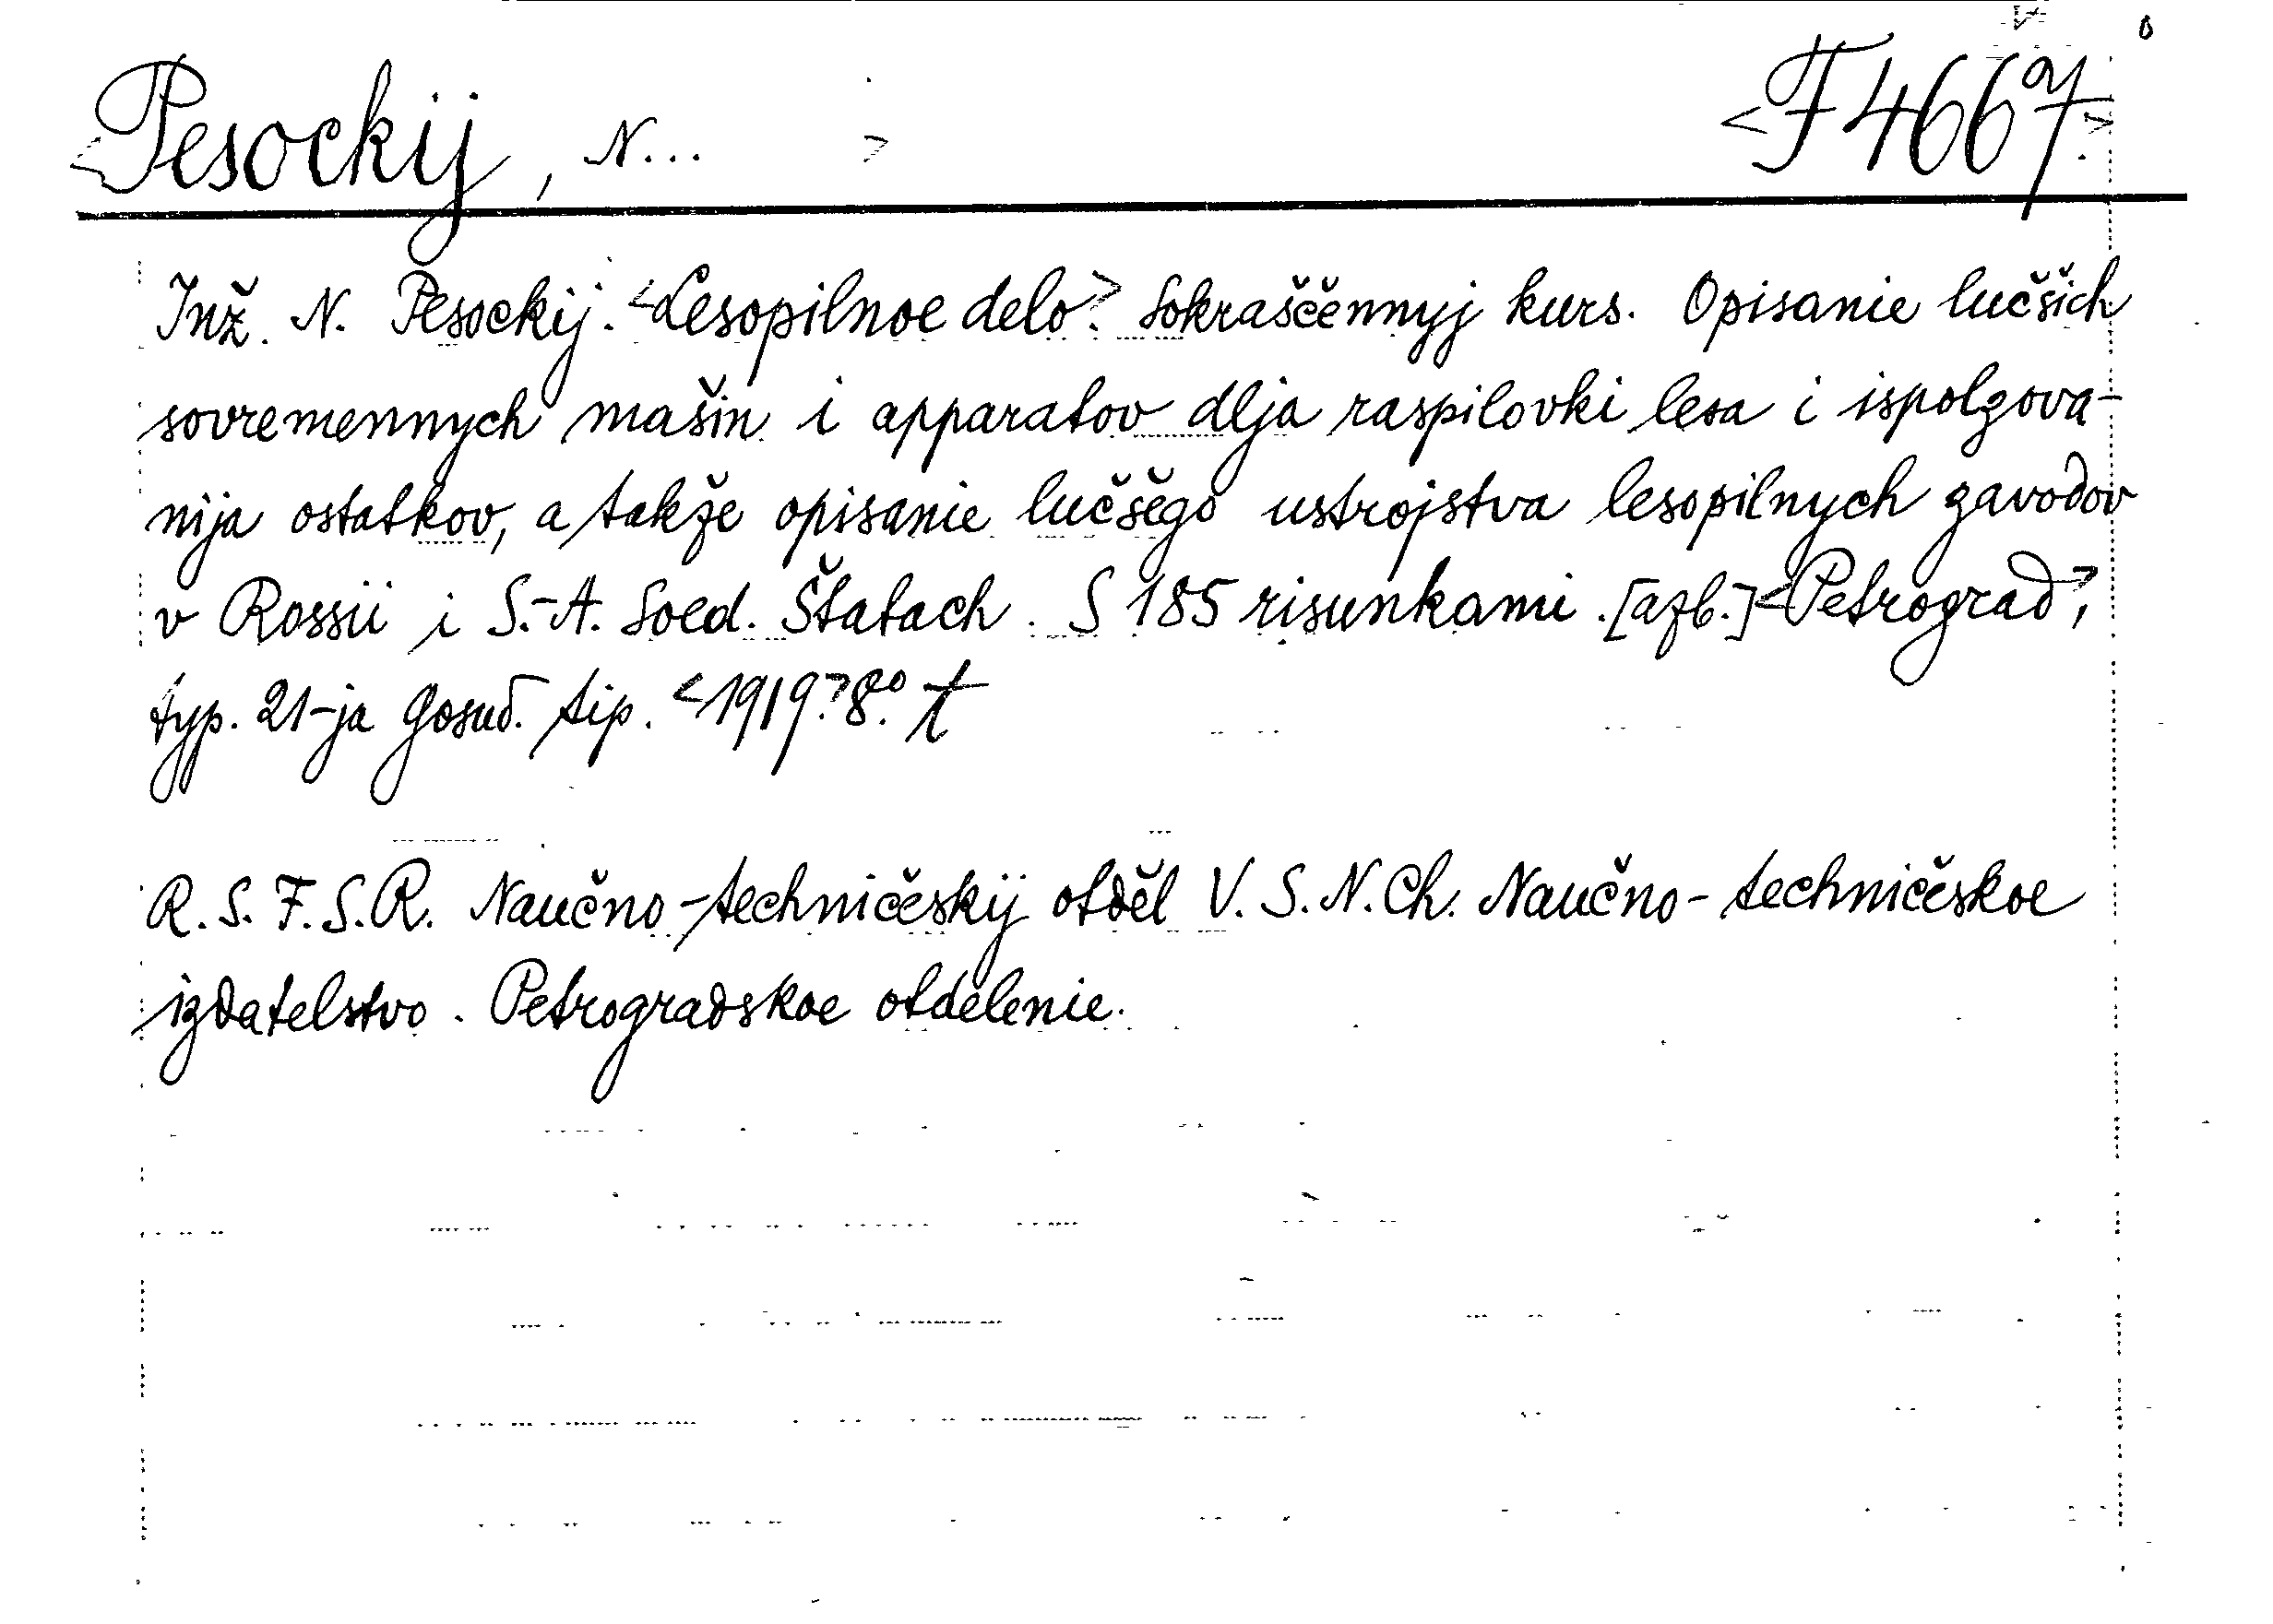 <Pesockij, N... > <F 4667.>
Inž. N. Pesockij. <Lesopilnoe delo>. Sokraščěnnyj kurs. Opisanie lučšich
sovremennych mašin i apparatov dlja raspilovki lesa i ispolzova-
nija ostatkov, a takže opisanie lučšego ustrojstva lesopilnych zavodov
v Rossii i S.-A. Soed. Štatach. S 185 risunkami. [azb.] <Petrograd>,
typ. 21-ja Gosud. tip. <1919>. 8°.
R. S. F. S. R. Naučno-techničeskij otděl V. S. N. Ch. Naučno-techničeskoe
izdatelstvo. Petrogradskoe otdelenie.